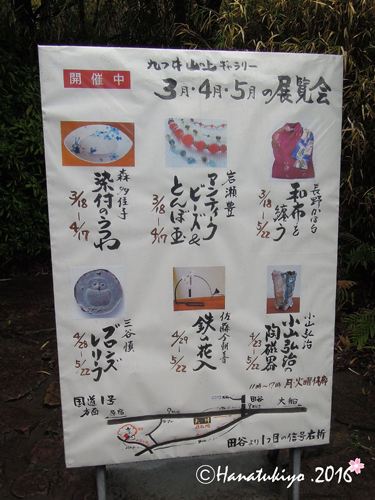 九つ井 山の上ギャラリー
開催中
3月・4月・5月の展覧会
森 多佳子
染付のうつわ
3/18〜4/17
岩瀬 豊
アンティークビーズ&
とんぼ玉
3/18〜4/17
長野かほる
和布を
纏う
3/18〜5/22
三谷 慎
ブロンズ
レリーフ
4/23〜5/22
鉄の花入
4/29〜5/22
小山弘治
小山弘治の
陶磁器
4/23〜5/22
11時〜17時 月・火曜休廊
国道1号
方面
原宿
田谷
大船
田谷より1つ目の信号右折
©Hanatukiyo.2016